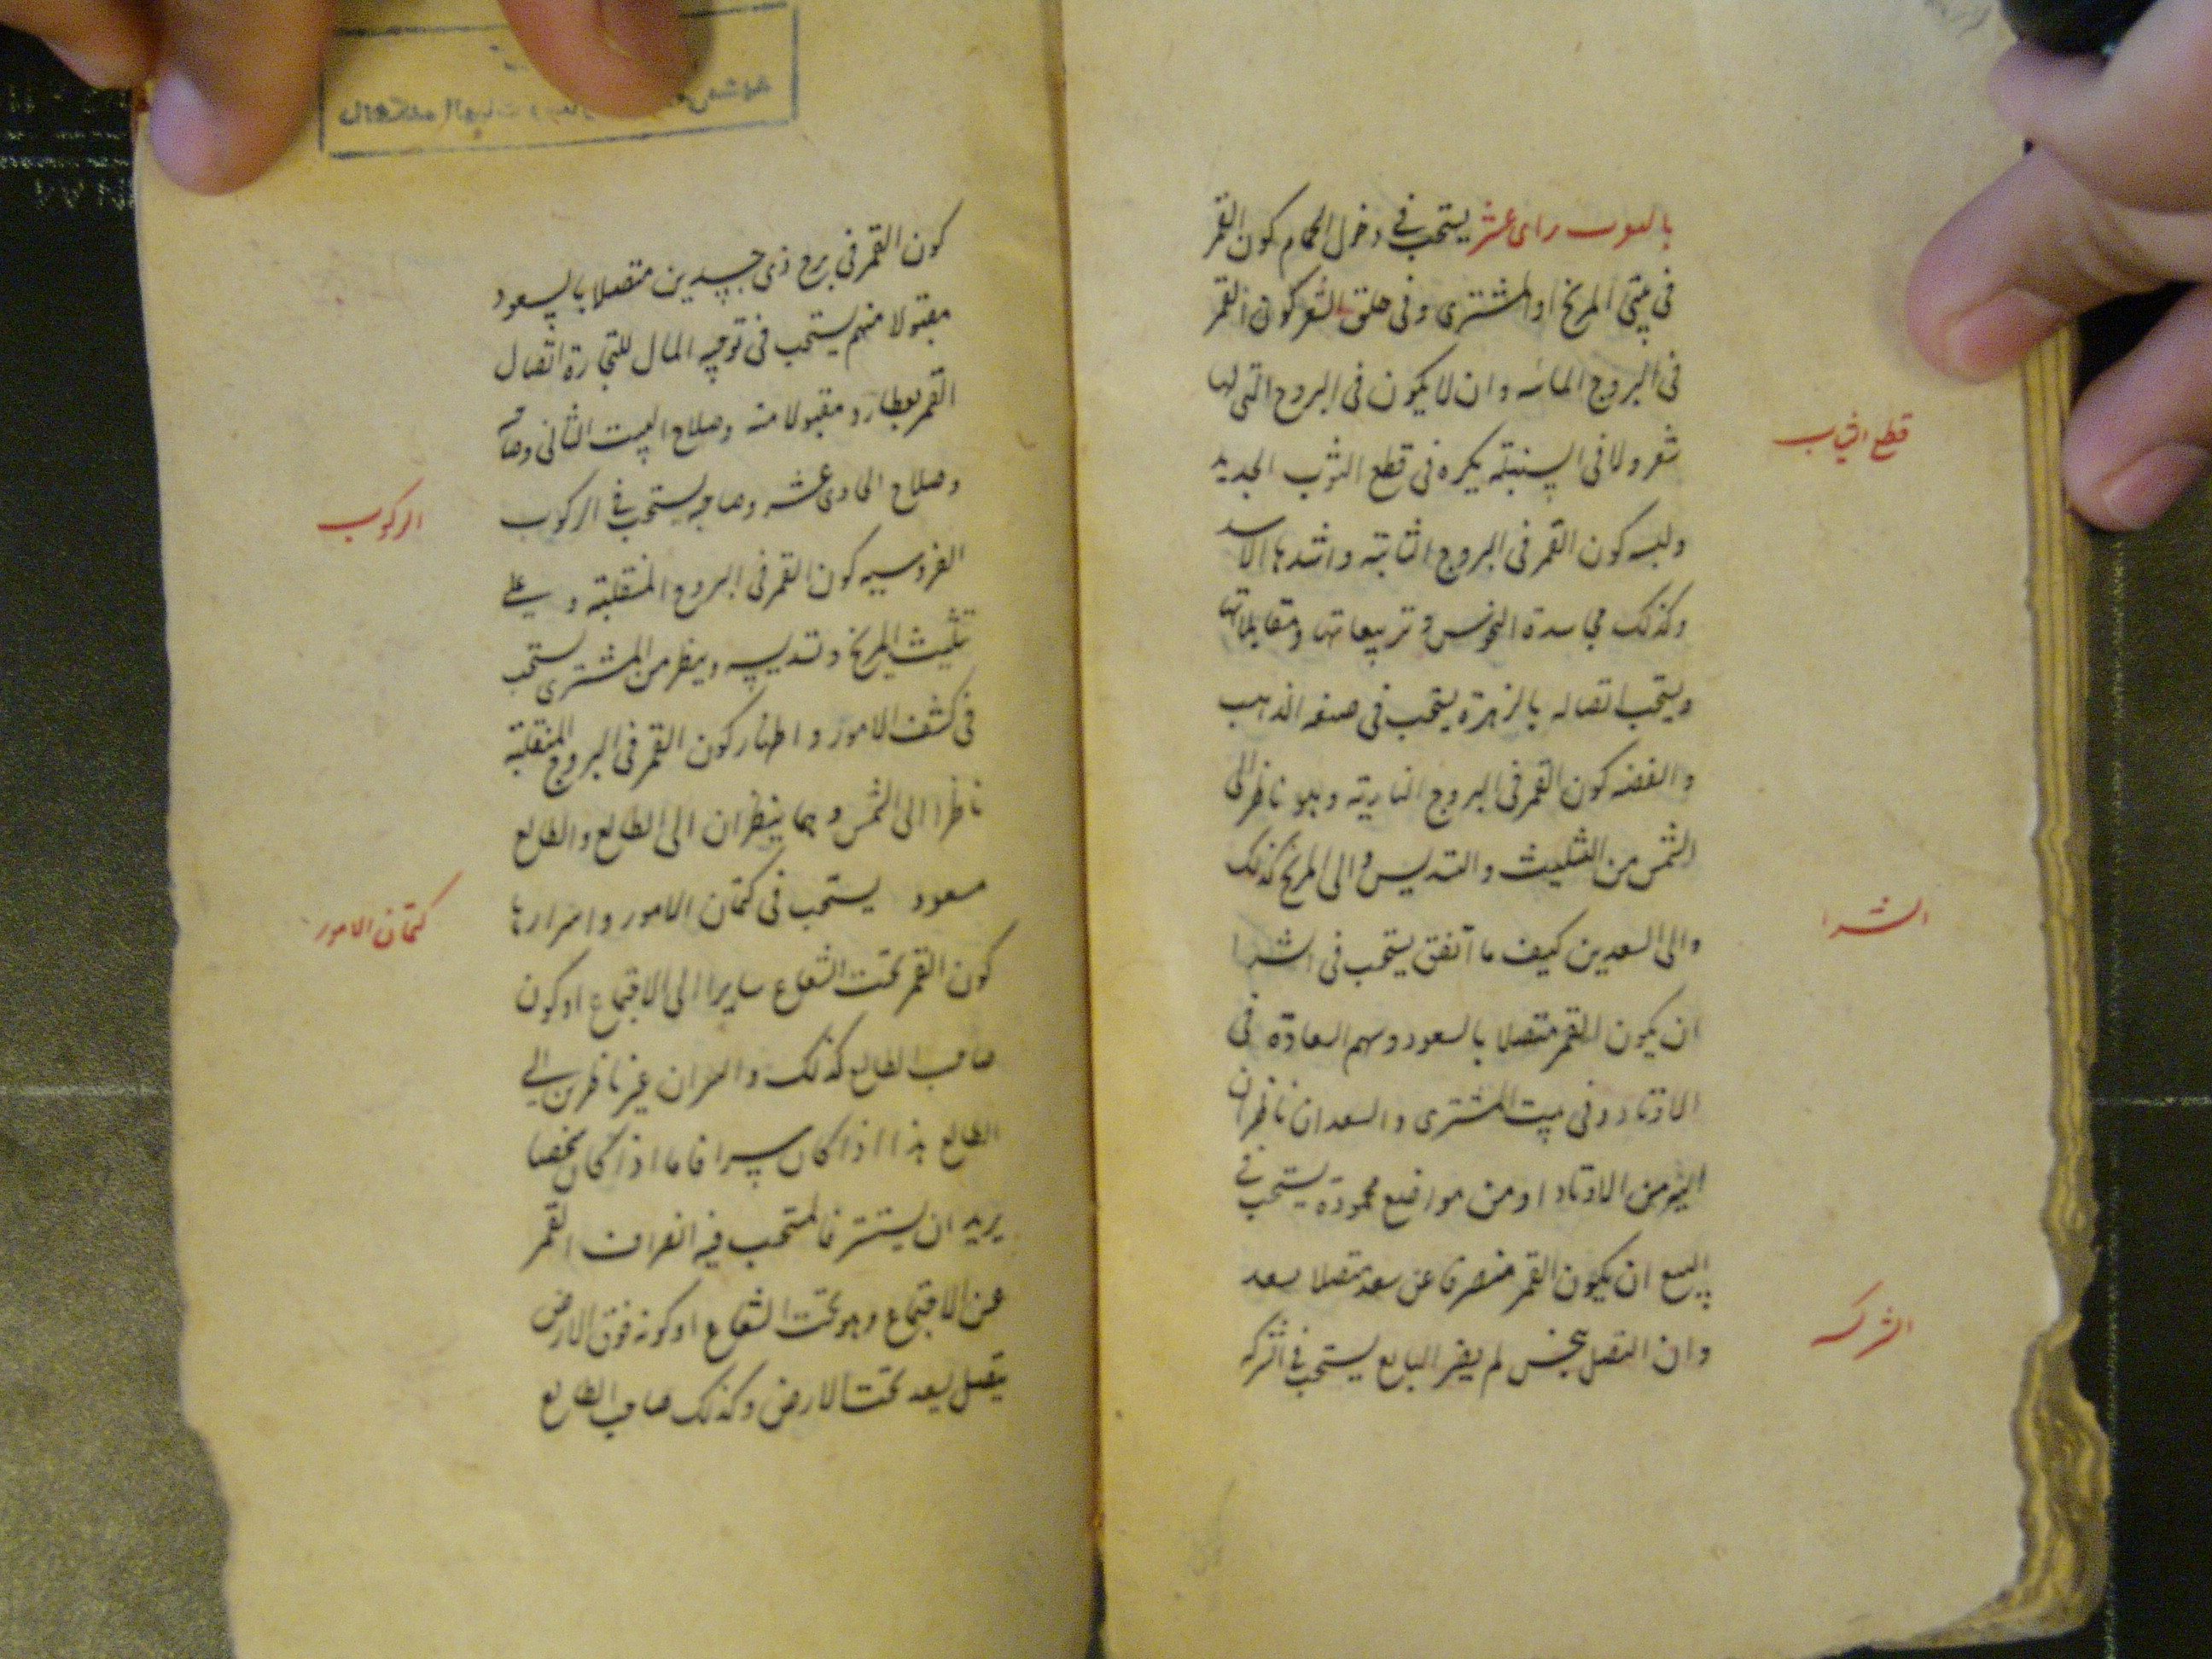 يستحب في دخول الحمام كون القمر
في بيتى المريخ او المشترى وفى حلق الشعر كون القمر
فى البروج المائيه وان لا يكون فى البروج التى لها
شعر ولا فى السنبلة يكره فى قطع الثوب الجديد
قطع الثياب
ولبسه كون القمر فى البروج الثابتة واشدها الاسد
وكذلك مجاسدة النحوس وتربيعاتها ومقابلاتها
ويستحب اتصاله بالزهرة يستحب فى صنعه الذهب
والفضه كون القمر فى البروج النارية وهو ناظر الى
الشمس من التثليث والتسديس والى المريخ كذلك
والى السعدين كيف ما اتفق يستحب فى الشرا
الشرا
ان يكون القمر متصلا بالسعود وسهم السعادة فى
الاوتاد وفى بيت المشترى والسعدان ناظران
اليه من الاوتاد او من مواضع محمودة يستحب في
البيع ان يكون القمر منصرفا عن سعد متصلا بسعد
وان اتصل بنحس لم يضر البايع يستحب في الشركه
الشركه
كون القمر فى برج ذى جسدين متصلا بالسعود
مقبولا منهم يستحب فى توجيه المال للتجارة اتصال
القمر بعطارد مقبولا منه وصلاح البيت الثانى وصاحبه
وصلاح الحادى عشر وصاحبه يستحب في الركوب
الركوب
الفروسيه كون القمر فى البروج المنقلبة و على
تثليث المريخ وتسديسه وينظر من المشترى يستحب
فى كشف الامور واظهار كون القمر فى البروج المنقلبة
ناظرا الى الشمس وهما ينظران الى الطالع والطالع
مسعود يستحب فى كتمان الامور واسرارها
كتمان الامور
كون القمر تحت الشعاع سايرا الى الاجتماع او كون
صاحب الطالع كذلك والنيران غير ناظرين الى
الطالع هذا اذا كان سرا فاما اذا كان شخصا
يريد ان يستتر فالمستحب فيه انصراف القمر
عن الاجتماع وهو تحت الشعاع او كونه فوق الارض
يتصل بسعد تحت الارض وكذلك صاحب الطالع